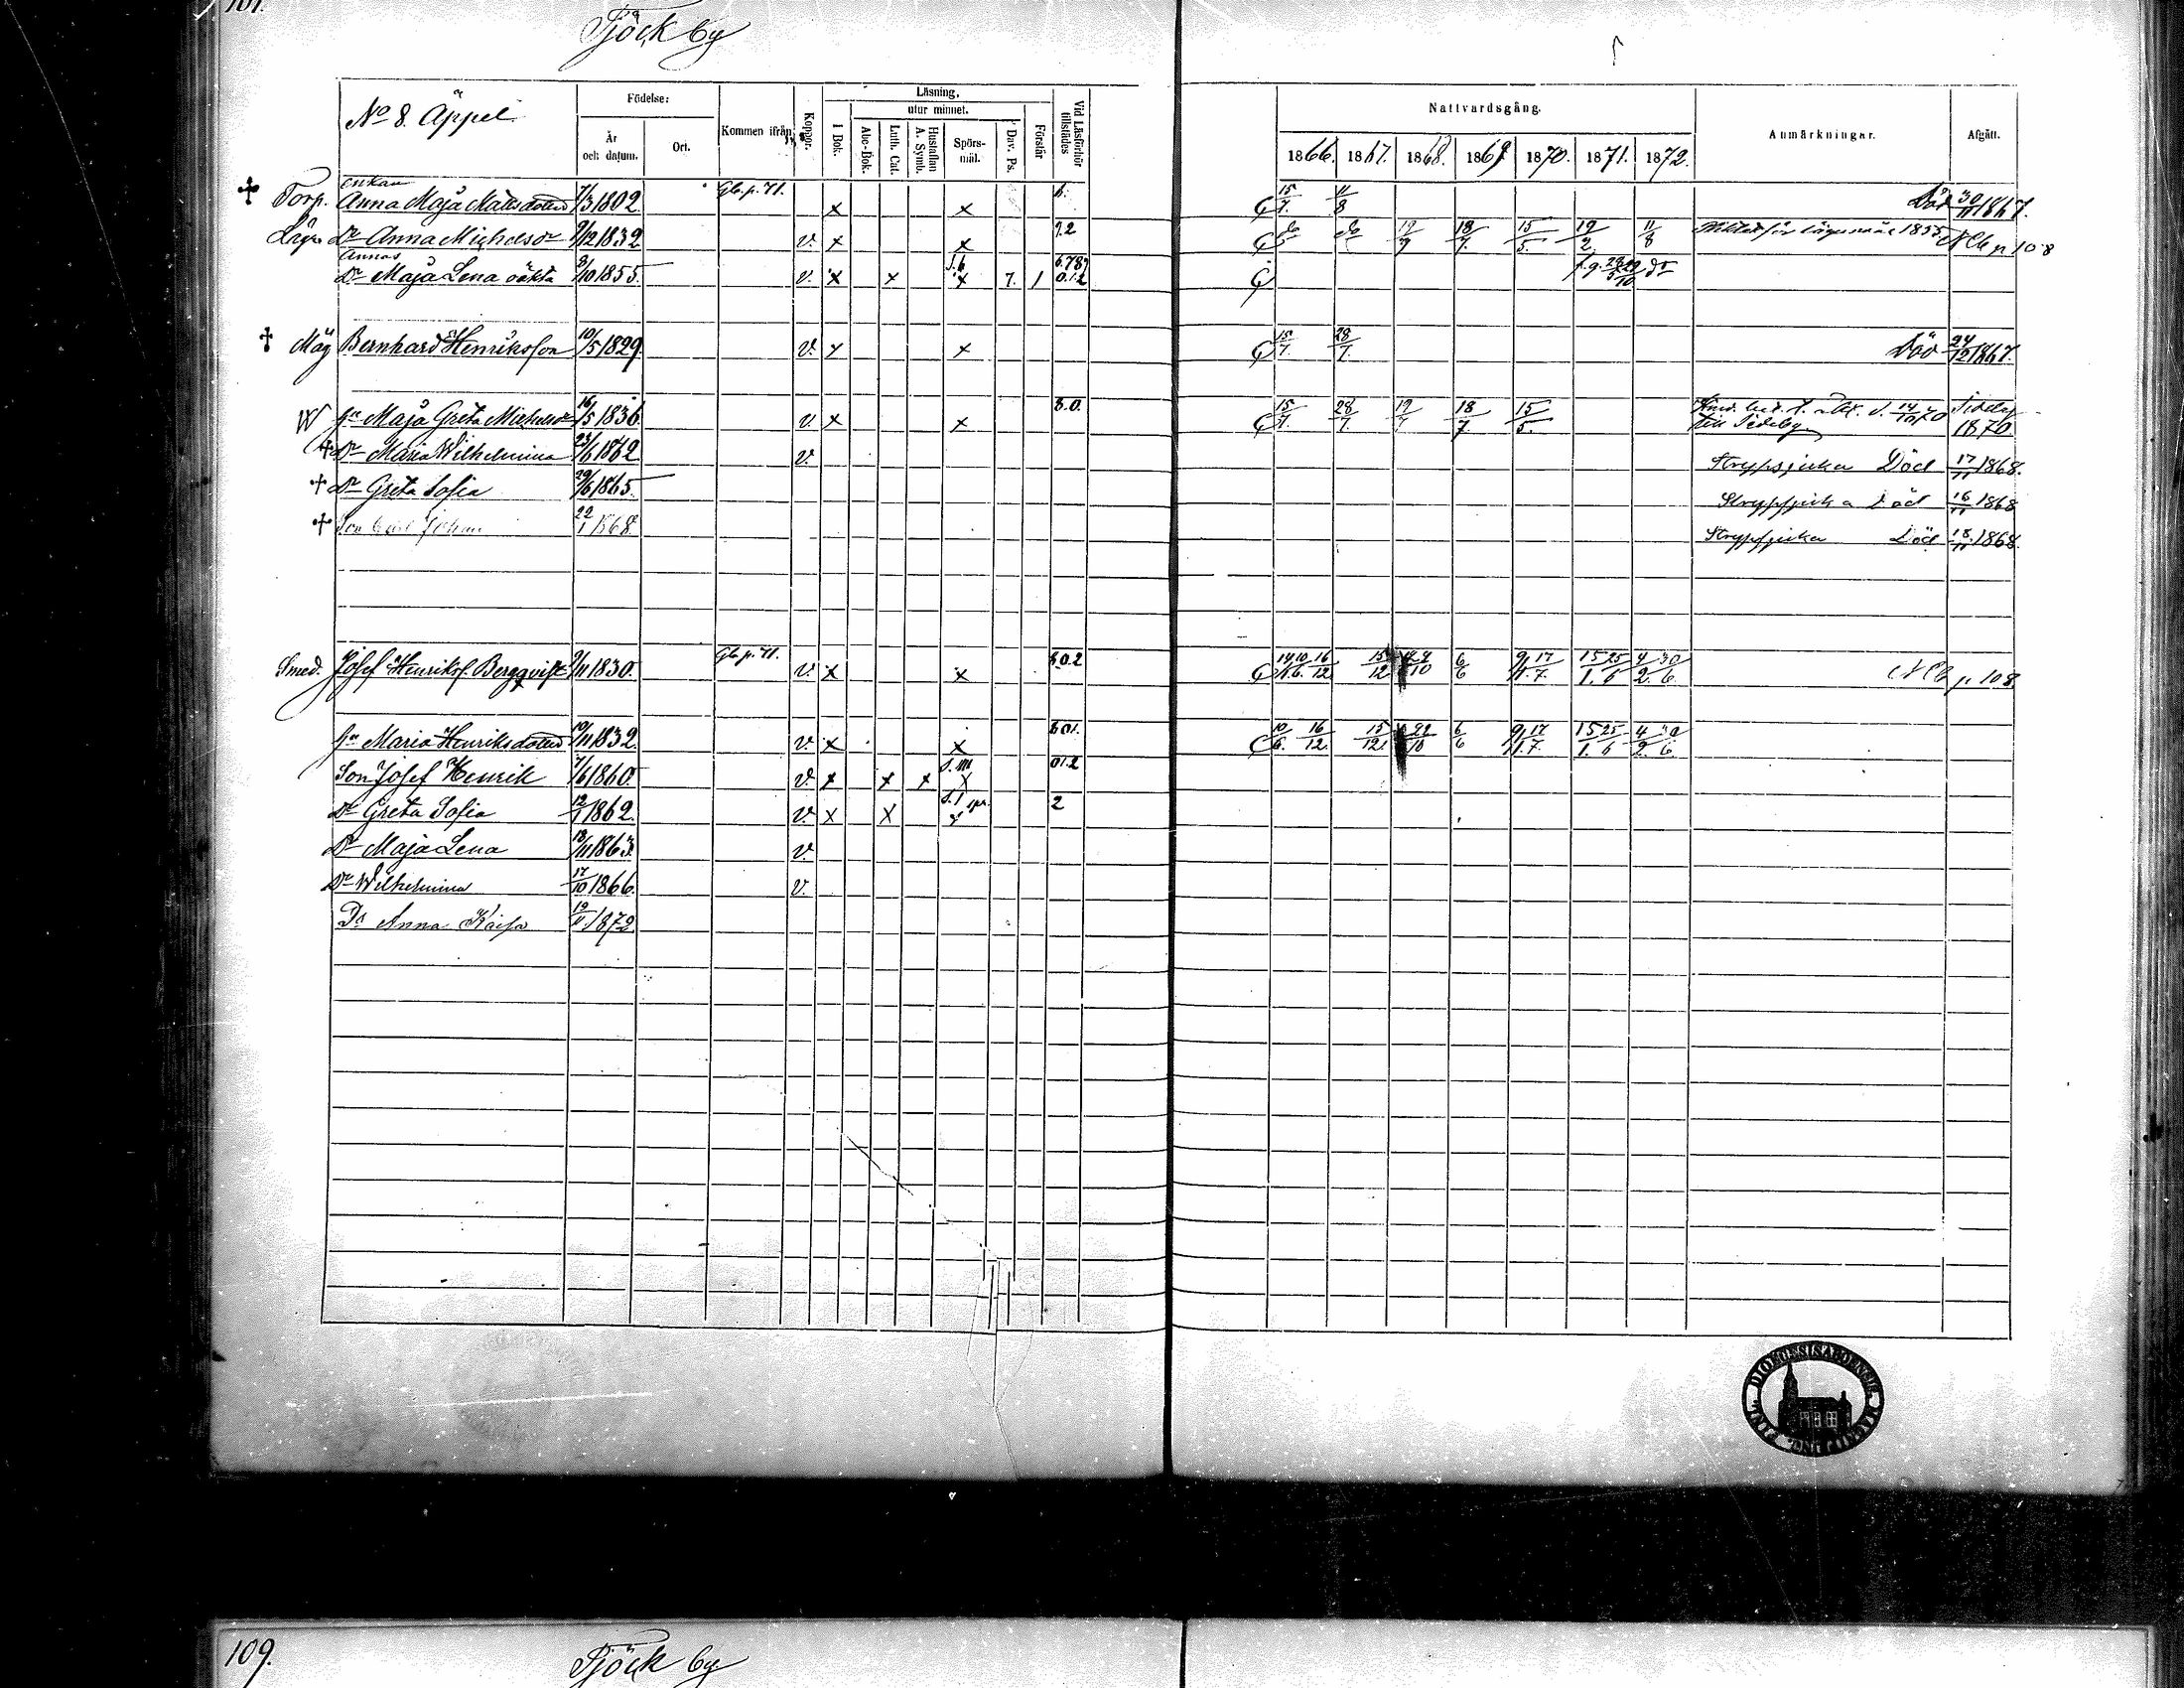 107.
Tjöck by
No 8. Äppel.
Födelse:
År och datum.
Ort.
Kommen ifrån
Koppor.
Läsning,
utur minnet.
I Bok.
Abc-Bok.
Luth. Cat.
Hustaflan A. Symb.
Spörs-mål.
Dav. Ps.
Förstår
Vid Läsförhör tillstädes
Nattvardsgång.
1866. 1867. 1868. 1869 1870. 1871. 1872.
Anmärkningar.
Afgått.
Torp. enkan Anna Maja Mattsdotter 7/3 1802. Gb. p. 71. x x 6. 15/7. 11/8 Död 30/11 1867.
Dr Anna Michelsdr 9/12 1832 v. x x 9.2 do do 19/7 18/7. 15/5. 19/2 11/8 1855 NCb p 108
Annas Dr Maja Lena oäkta 8/10 1855. v. x x x 7. 1 6.789 0.1.2
Måg Bernhard Henriksson 10/5 1829 v. x x 15/7. 28/7. Död 24/12 1867.
W hu Maja Greta Michelsdr 16/5 1836. v. x x 8.0. 15/7. 28/7. 19/7 18/7 15/5. 14/10 70 till Sideby Sideby 1870
Dr Maria Wilhelmina 23/6 1862 v. Strypsjuka Död 17/11 1868.
Dr Greta Sofia 29/6 1865. Strypsjuka Död 16/11 1868
Son Carl Johan 22/1 1868. Strypsjuka Död 18/11 1868.
Smed. Josef Henrikss. Bergqvist 9/11 1830. Gb. p. 71. v. x x 8.0.2 15/12 6/6 9/1. 17/7. 15/1. 25/6 4/2. 30/6. NCb p. 108
hu Maria Henriksdotter 10/11 1832. v. x x 8.01. 10/6. 16/12. 15/12. 22/10 6/6 9/1. 17/7. 15/1. 25/6 4/2. 30/6.
Son Josef Henrik 7/6 1860. v. x x x x 01.2
Dr Greta Sofia 12/1 1862. v. x x 2
Dr Maja Lena 18/11 1863. v.
Dr Wilhelmina 17/10 1866. v.
Dr Anna Kaisa 19/2 1872
DIOECESIS ABOENSIS. MAGNI. DUC. FINL.
109.
Tjöck by.